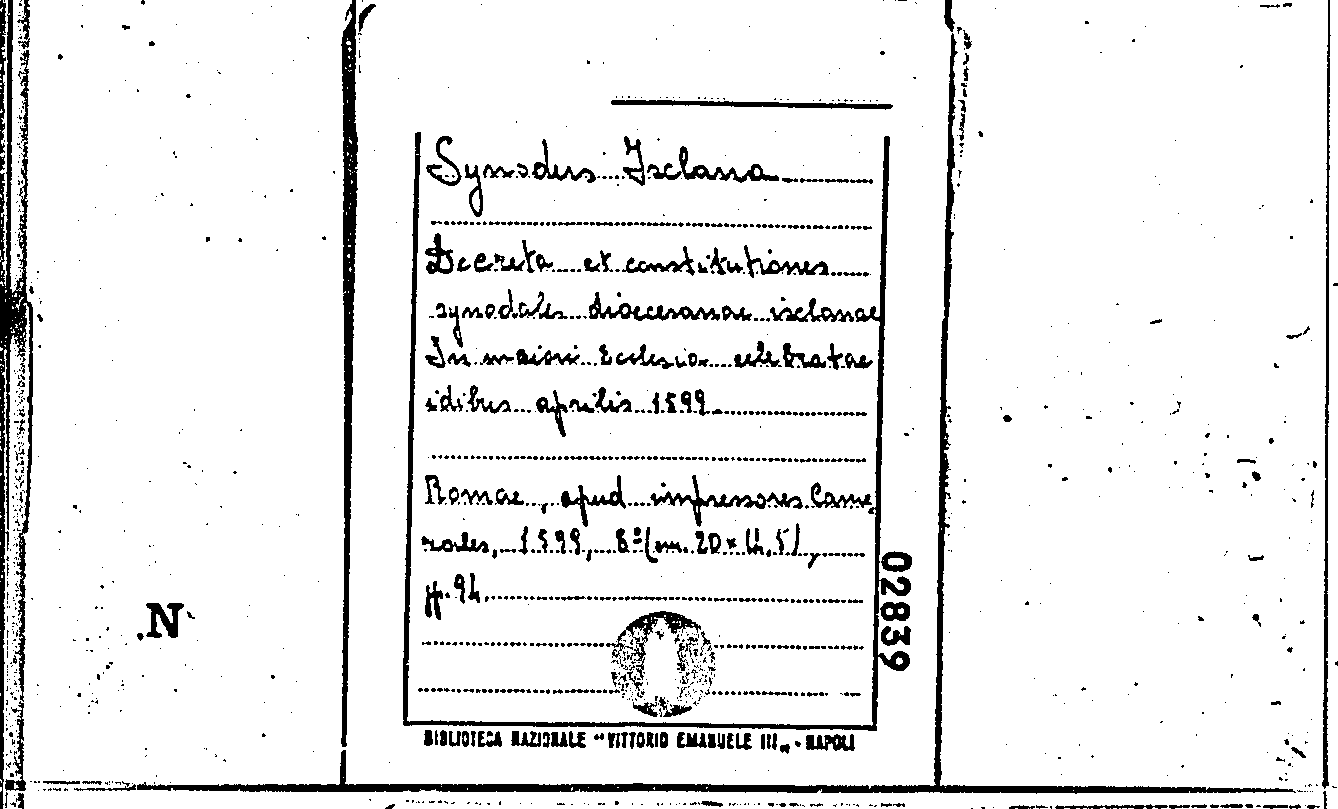 Synodus Isclana
Decreta et constitutiones
synodales dioecesanae isclanae
In maiori Ecclesia celebratae
idibus aprilis 1599.
Romae, apud impressores Came
rales, 1599, 8º (cm. 20 x 14,5),
pp. 94.
02839
.N
BIBLIOTECA NAZIONALE "VITTORIO EMANUELE III„ - NAPOLI